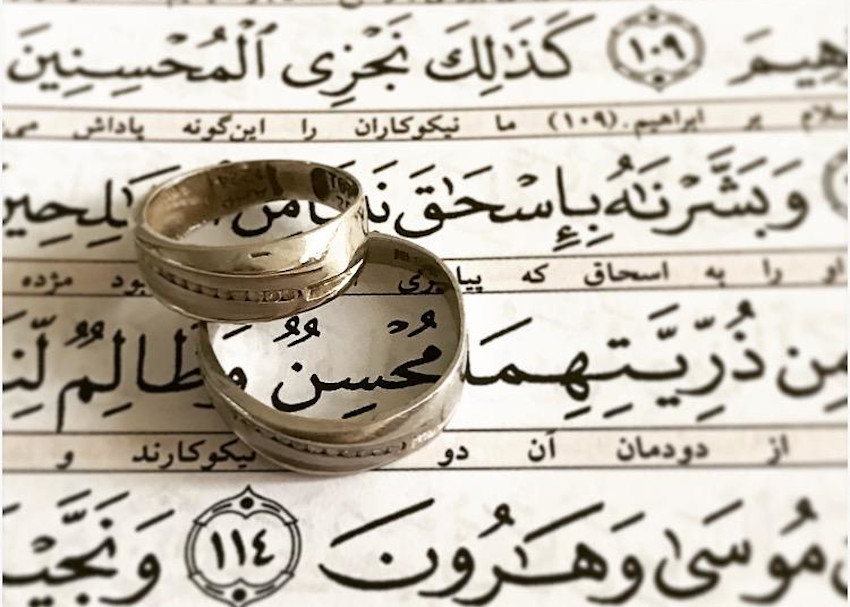 ـهِيمَ ١٠٩ كَذَٰلِكَ نَجْزِى ٱلْمُحْسِنِينَ
سلام بر ابراهیم.(۱۰۹) ما نیکوکاران را این‌گونه پاداش می
وَبَشَّرْنَـٰهُ بِإِسْحَـٰقَ
او را به اسحاق که بود مژده
مِن ذُرِّيَّتِهِمَا مُحْسِنٌ وَظَالِمٌ
از دودمان آن دو نیکوکارند و
مُوسَىٰ وَهَـٰرُونَ ١١٤ وَنَجَّيْـ